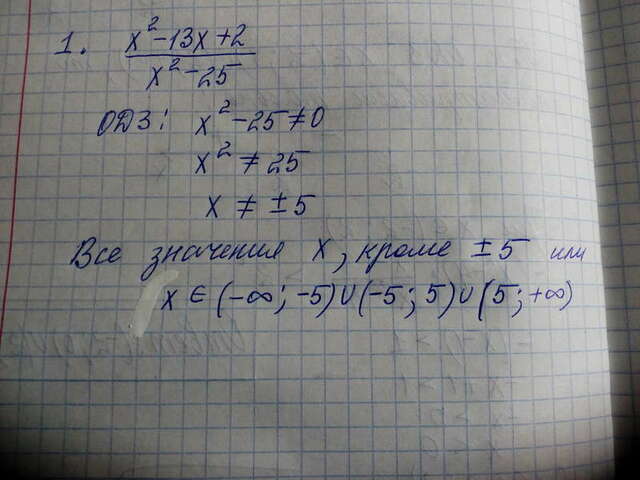 1. x² - 13x + 2
x² - 25
ОДЗ: x² - 25 ≠ 0
x² ≠ 25
x ≠ ± 5
Все значения x, кроме ± 5 или
x ∈ (-∞; -5) ∪ (-5; 5) ∪ (5; +∞)